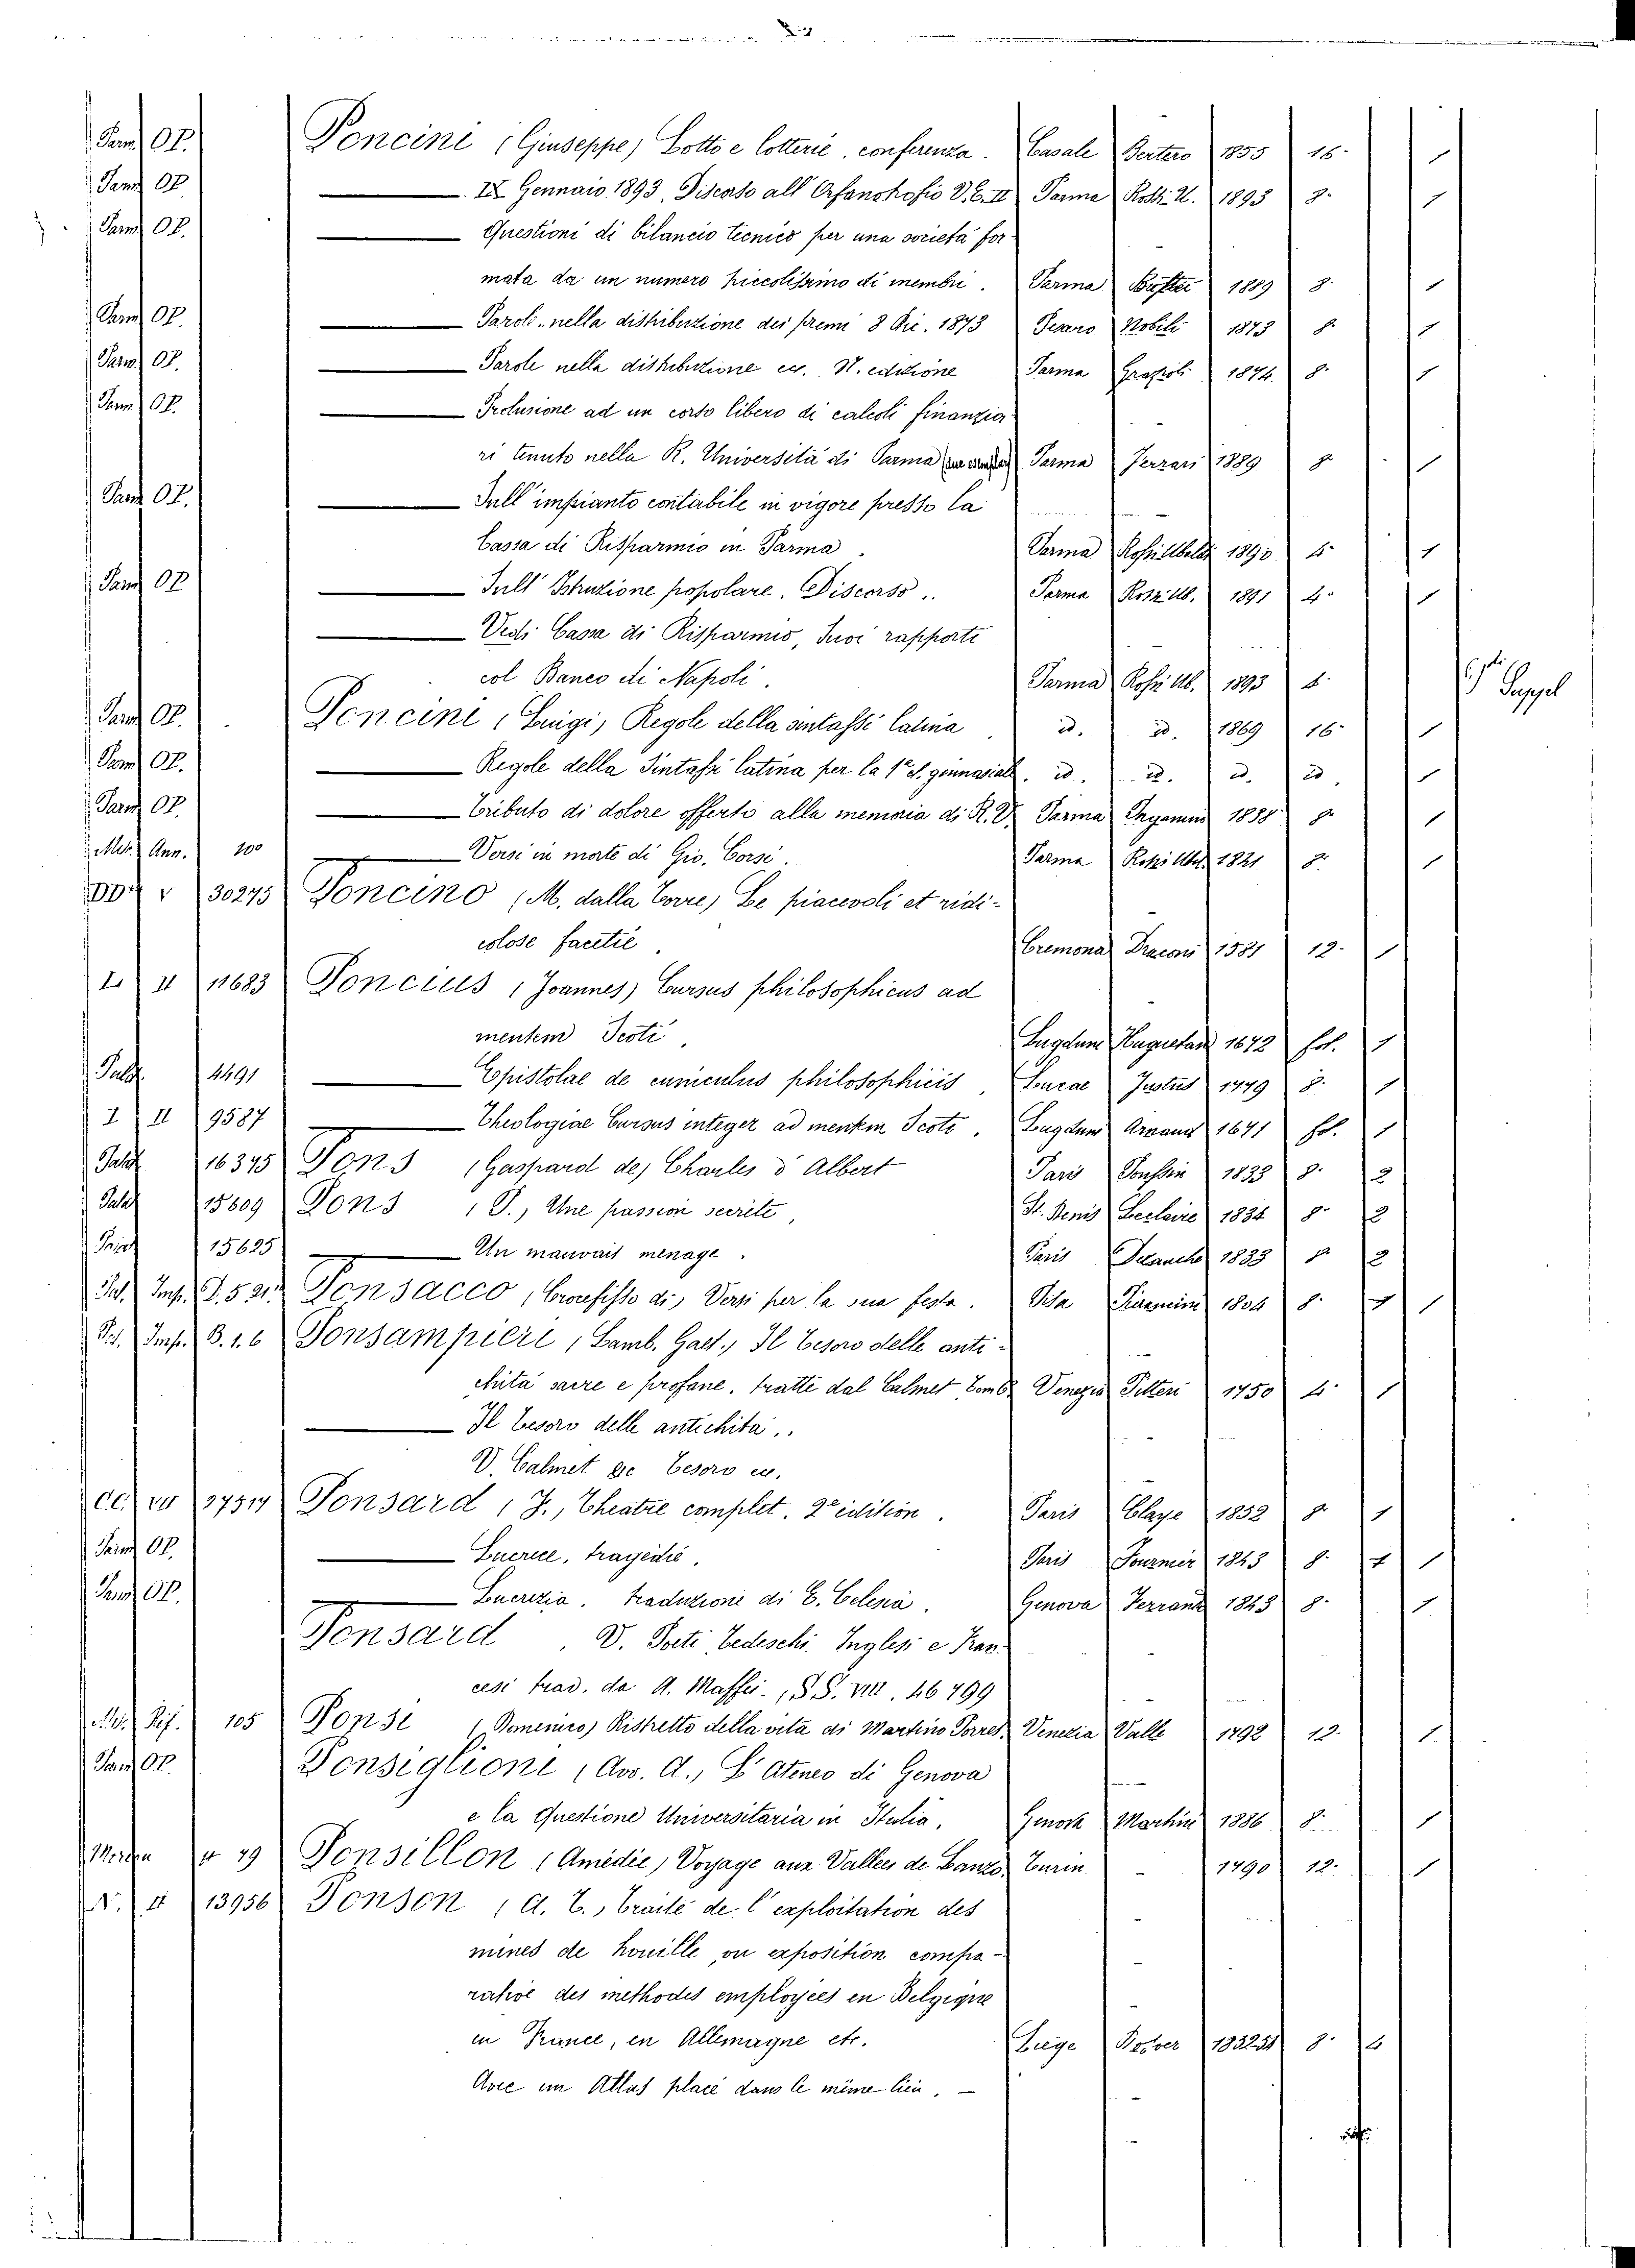 Parm. OP. Poncini (Giuseppe) Lotto e Lotterie, conferenza. Casale Bertero 1855 16. 1
Parm. OP. IX Gennaio 1893, Discorso all' Orfanotrofio V. E. II Parma 1893 8. 1
Parm. OP. Questioni di bilancio tecnico per una società for-
mata da un numero piccolissimo di membri. Parma 1889 8. 1
Parm. OP. Parole nella distribuzione dei premi 8 Dic. 1873 Pesaro Nobili 1873 8. 1
Parm. OP. Parole nella distribuzione ec. II. edizione Parma Grazioli 1874 8. 1
Parm. OP. Prolusione ad un corso libero di calcoli finanzia-
ri tenuto nella R. Università di Parma Parma Ferrari 1889 8. 1
Parm. OP. Sull' impianto contabile in vigore presso la
Cassa di Risparmio in Parma. Parma Rossi Ubaldi 1890 4. 1
Parm. OP. Sull' Istruzione popolare. Discorso. Parma Rossi Ub. 1891 4. 1
Vedi Cassa di Risparmio, Suoi rapporti
col Banco di Napoli. Parma Rossi Ub. 1893 4. Suppel
Parm. OP. Poncini (Luigi) Regole della sintassi latina id. id. 1869 16. 1
Parm. OP. Regole della Sintassi latina per la 1a cl. ginnasiale. id. id. id. id. 1
Parm. OP. Tributo di dolore offerto alla memoria di R. V. Parma 1888 8. 1
Misc. Ann. 100 Versi in morte di Gio. Corsi. Parma Rossi Ubal. 1821 8. 1
DD. V 30275 Poncino (M. dalla Torre) Le piacevoli et ridi-
colose facetie. Cremona Draconi 1581 12. 1
L. II 11683 Poncius (Joannes) Cursus philosophicus ad
mentem Scoti. Lugduni Huguetan 1672 fol. 1
Palat. 4491 Epistolae de cuniculus philosophicis, Lucae Justus 1749 8. 1
I II 9587 Theologiae Cursus integer ad mentem Scoti. Lugduni Arnaud 1671 fol. 1
Palat. 16375 Pons (Gaspard de) Charles d' Albert Paris Poussin 1833 8. 2
Palat. 15609 Pons (P.) Une passion secrète, St. Denis Leclaire 1834 8. 2
Palat. 15625 Un mauvais menage. Paris 1833 8. 2
Pal. Imp. P. 5 Ponsacco (Crocifisso di) Versi per la sua festa. Pisa 1804 8. 1
Pal. Imp. B. 1. 6 Ponsampieri (Lamb. Gaet.) Il tesoro delle anti-
chità sacre e profane, tratte dal Calmet Venezia Pitteri 1750 4. 1
Il tesoro delle antichità.
V. Calmet Tesoro ec.
CC. VII 27517 Ponsard (F.) Theatre complet. 2e édition. Paris Claye 1852 8. 1
Parm. OP. Lucrèce, tragédie. Paris Fournier 1843 8. 1
Parm. OP. Lucrezia. traduzione di C. Celesia. Genova Ferrando 1843 8. 1
Ponsard. V. Poeti Tedeschi Inglesi e Fran-
cesi trad. da A. Maffei. (S.S. VIII. 46799
105 Ponsi (Domenico) Ristretto della vita di Martino Porres. Venezia Valle 1792 12. 1
Parm. OP. Ponsiglioni (Avv. A.) L' Ateneo di Genova
e la Questione Universitaria in Italia. Genova Martini 1886 8. 1
79 Ponsillon (Amédée) Voyage aux Vallées de Lanzo. Turin - 1790 12. 1
13956 Ponson (A. T.) Traité de l' exploitation des
mines de houille, ou exposition compa-
rative des methodes employées en Belgique
en France, en Allemagne etc. Liege 8. 4
Avec un Atlas placé dans le même lieu. -